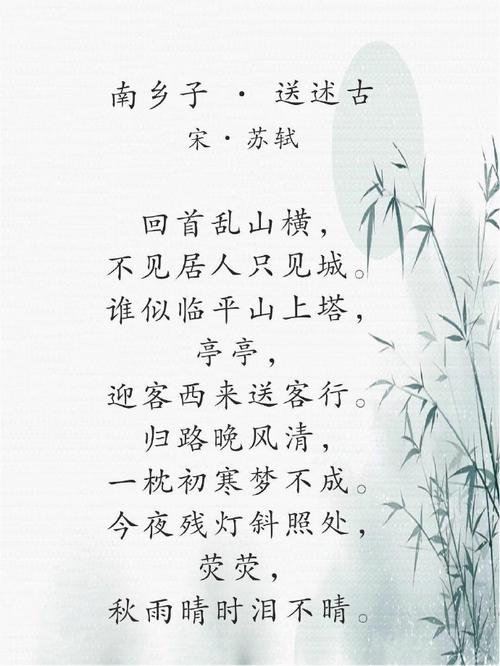 南乡子 · 送述古
宋 · 苏轼
回首乱山横，
不见居人只见城。
谁似临平山上塔，
亭亭，
迎客西来送客行。
归路晚风清，
一枕初寒梦不成。
今夜残灯斜照处，
荧荧，
秋雨晴时泪不晴。